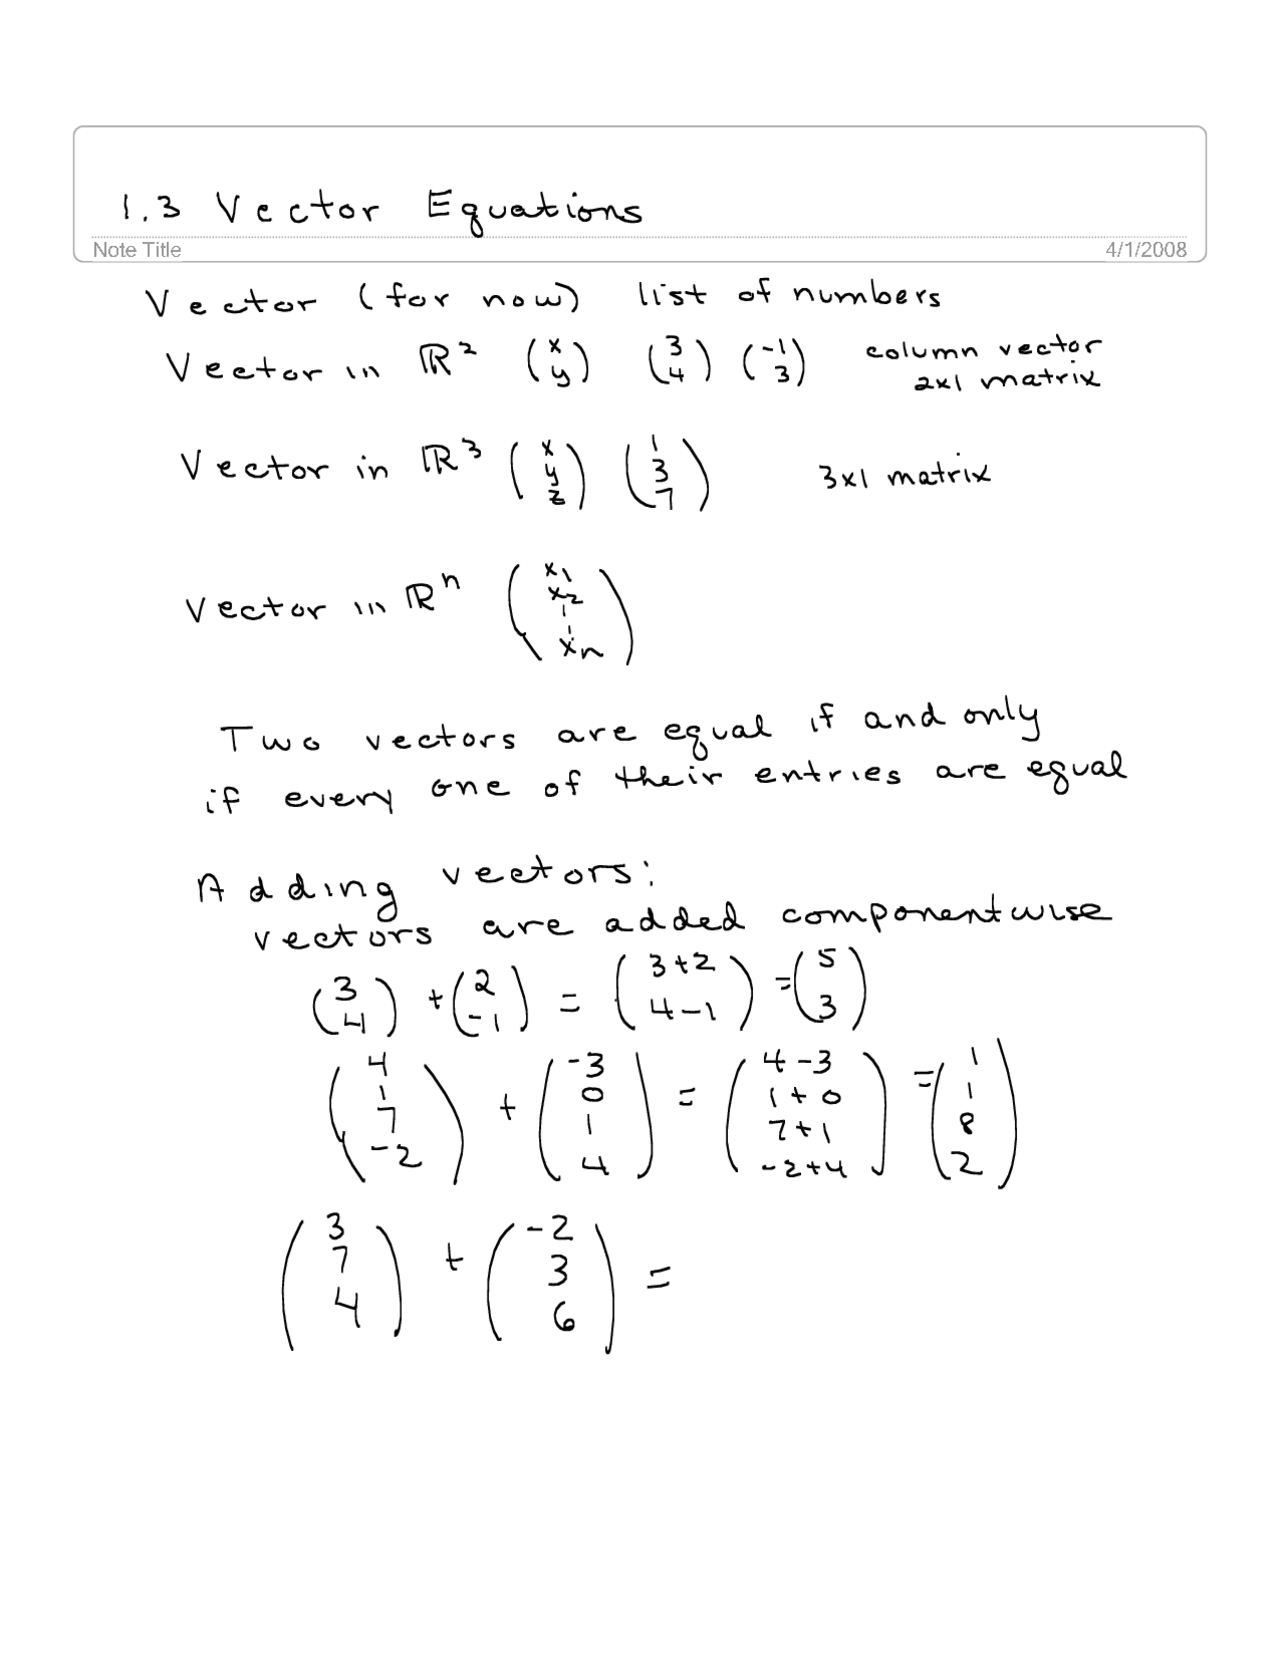 1.3 Vector Equations
Note Title 4/1/2008
Vector (for now) list of numbers
Vector in ℝ² (x y) (3 4) (-1 3) column vector
2x1 matrix
Vector in ℝ³ (x y z) (1 3 7) 3x1 matrix
Vector in ℝⁿ (x₁ x₂ ⋮ xₙ)
Two vectors are equal if and only
if every one of their entries are equal
Adding vectors:
vectors are added componentwise
(3 4) + (2 -1) = (3+2 4-1) = (5 3)
(4 1 7 -2) + (-3 0 1 4) = (4-3 1+0 7+1 -2+4) = (1 1 8 2)
(3 7 4) + (-2 3 6) =